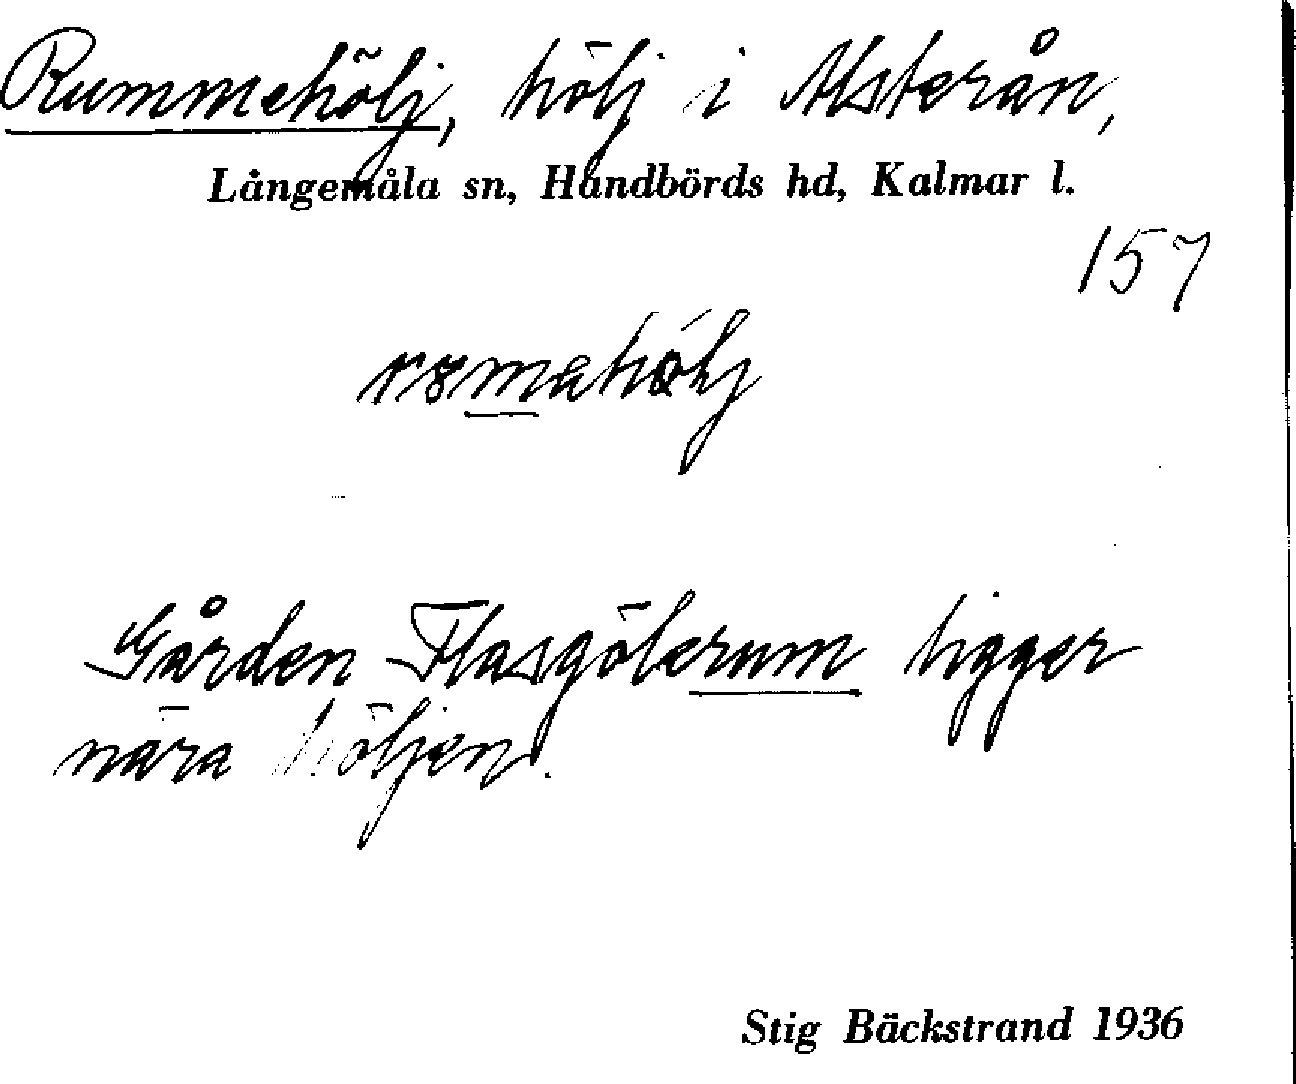 Rummehölj, hölj i Alsterån,
Långemåla sn, Handbörds hd, Kalmar l.
157
Gården Flasgölerum ligger
nära höljen.
Stig Bäckstrand 1936